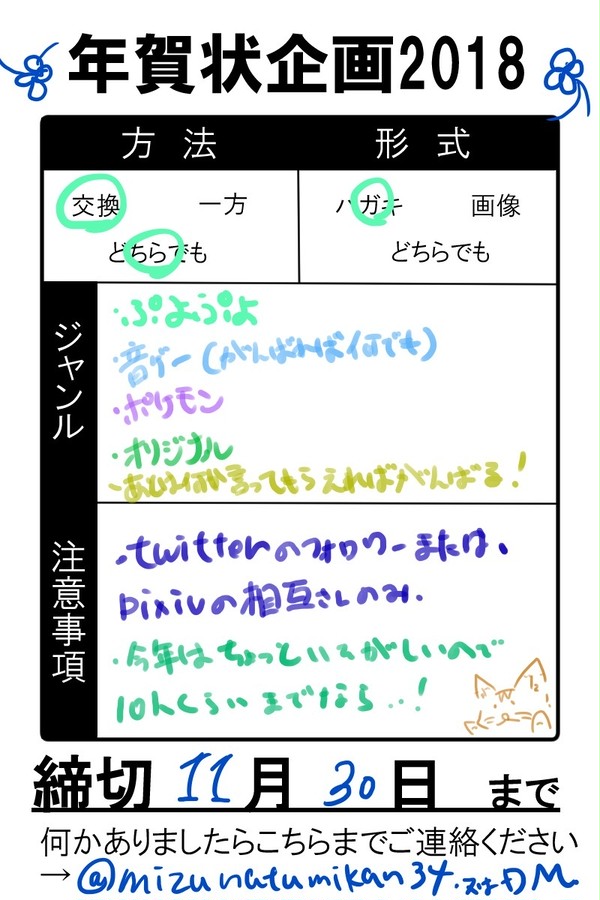 年賀状企画2018
方法 形式
交換 一方 ハガキ 画像
どちらでも どちらでも
ジャンル
・ぷよぷよ
・音ゲー(がんばれば何でも)
・ポケモン
・オリジナル
・あとは何か言ってもらえればがんばる!
注意事項
・twitterのフォロワーまたは、
pixivの相互さんのみ.
・今年はちょっといそがしいので
10人くらいまでなら..!
締切 11月 30日 まで
何かありましたらこちらまでご連絡ください
→@mizunatumikan34.
DM